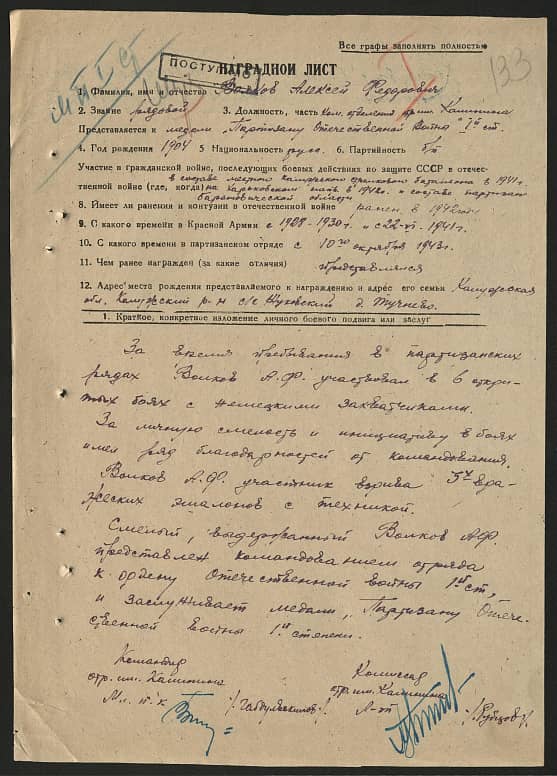 Все графы заполнять полностью
133
ПОСТУПИЛО
НАГРАДНОЙ ЛИСТ
1. Фамилия, имя и отчество Волков Алексей Федорович
2. Звание рядовой 3. Должность, часть ком. отделения отр. им. Калинина
Представляется к медали "Партизану Отечественной Войны" 1й ст.
4. Год рождения 1904 5 Национальность русс. 6. Партийность б/п
Участие в гражданской войне, последующих боевых действиях по защите СССР в отечес-
в составе стрелкового батальона в 1941г.
твенной войне (где, когда) на харьковском в 1942г. в составе партизан
барановической области
8. Имеет ли ранения и контузии в отечественной войне ранен в 1942 году
9. С какого времени в Красной Армии с 1928-1930г. и с 22-VI-1941г.
10. С какого времени в партизанском отряде с 10го октября 1943г.
11. Чем ранее награжден (за какие отличия) представлялся
12. Адрес места рождения представляемого к награждению и адрес его семьи Калужская
обл. Калужский р-н с/с Жуковский д. Тучнево
1. Краткое, конкретное изложение личного боевого подвига или заслуг
За время пребывания в партизанских
рядах Волков А.Ф. участвовал в 6 откры-
тых боях с немецкими захватчиками.
За личную смелость и инициативу в боях
имел ряд благодарностей от командования.
Волков А.Ф. участник взрыва вра-
жеских эшалонов с техникой.
Смелый, выдержанный Волков А.Ф.
представлен командованием отряда
к ордену Отечественной войны 1й ст,
и заслуживает медали, Партизану Отече-
ственной войны 1й степени.
Командир
отр. им. Калинина
Мл. л-т
Комиссар
отр. им. Калинина
Л-т